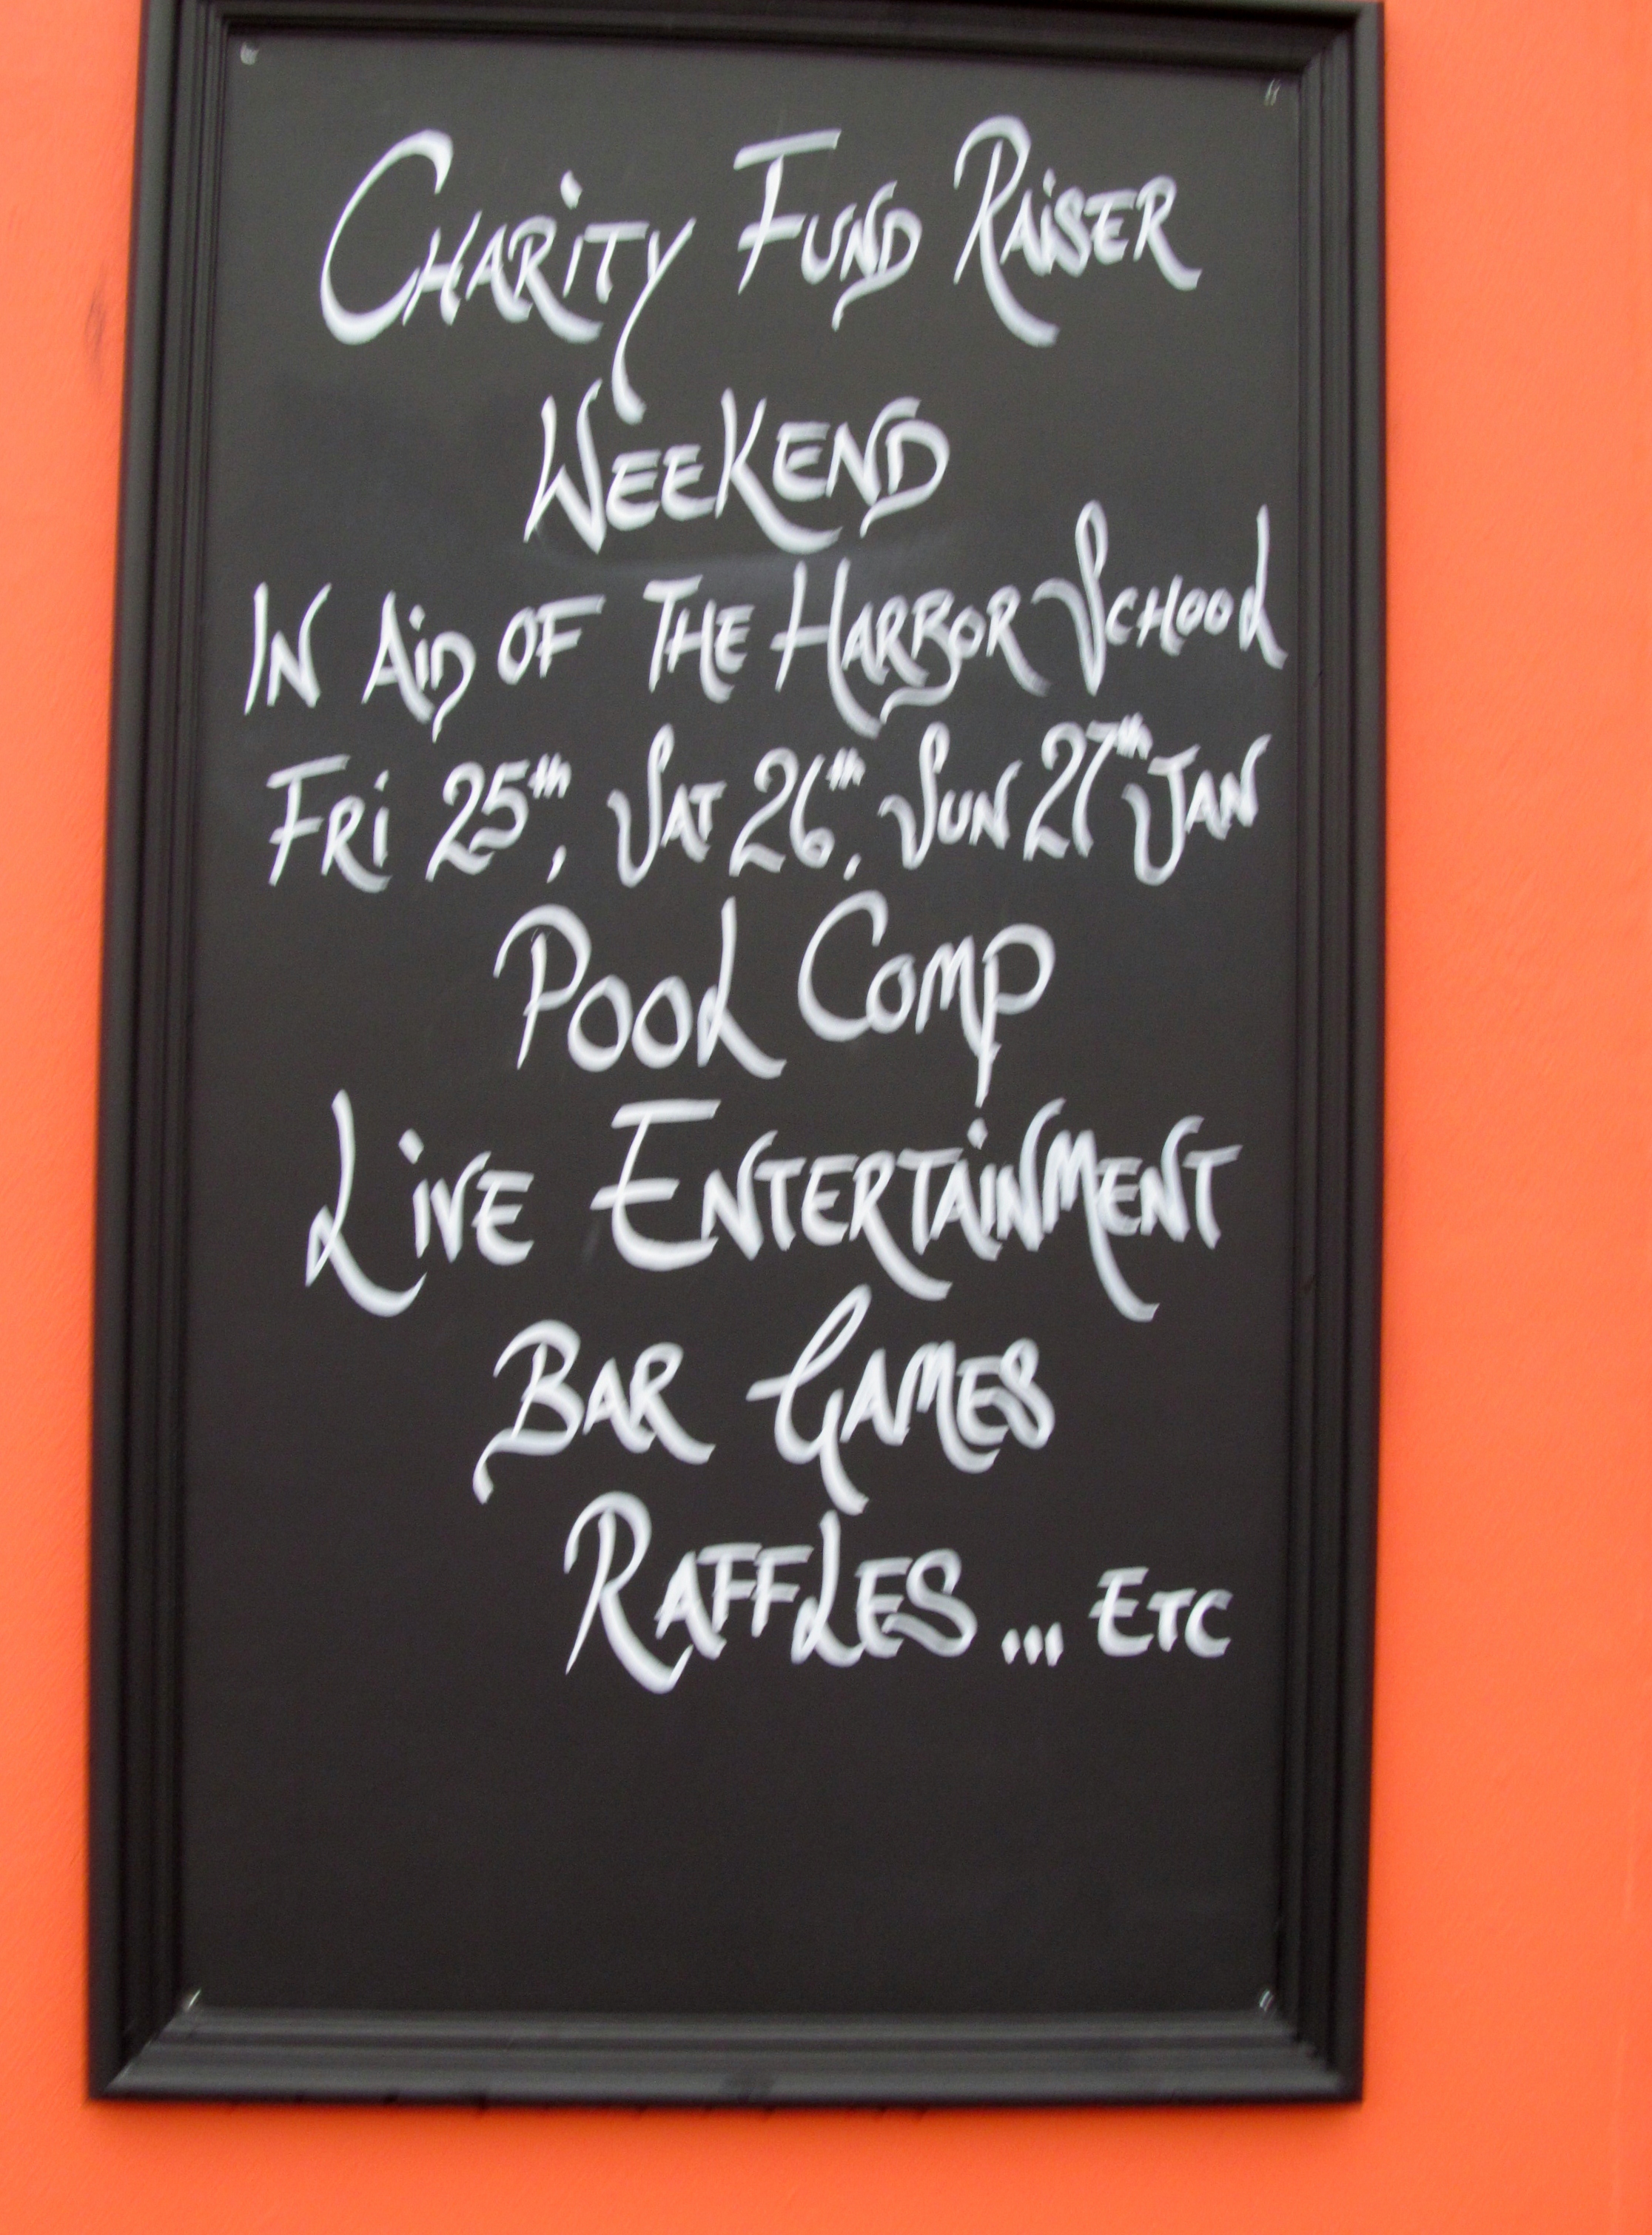 Charity Fund Raiser
Weekend
In Aid of The Harbor School
Fri 25th, Sat 26th, Sun 27th Jan
Pool Comp
Live Entertainment
Bar Games
Raffles... Etc